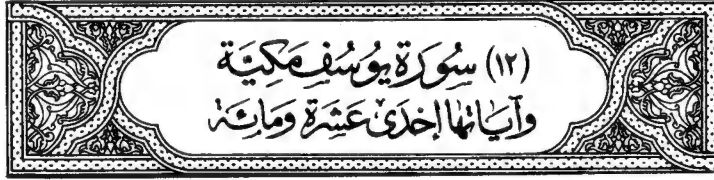 (١٢) سُورَة يوسُف مَكيّة
وآياتها إحدى عَشرَة وَمائة